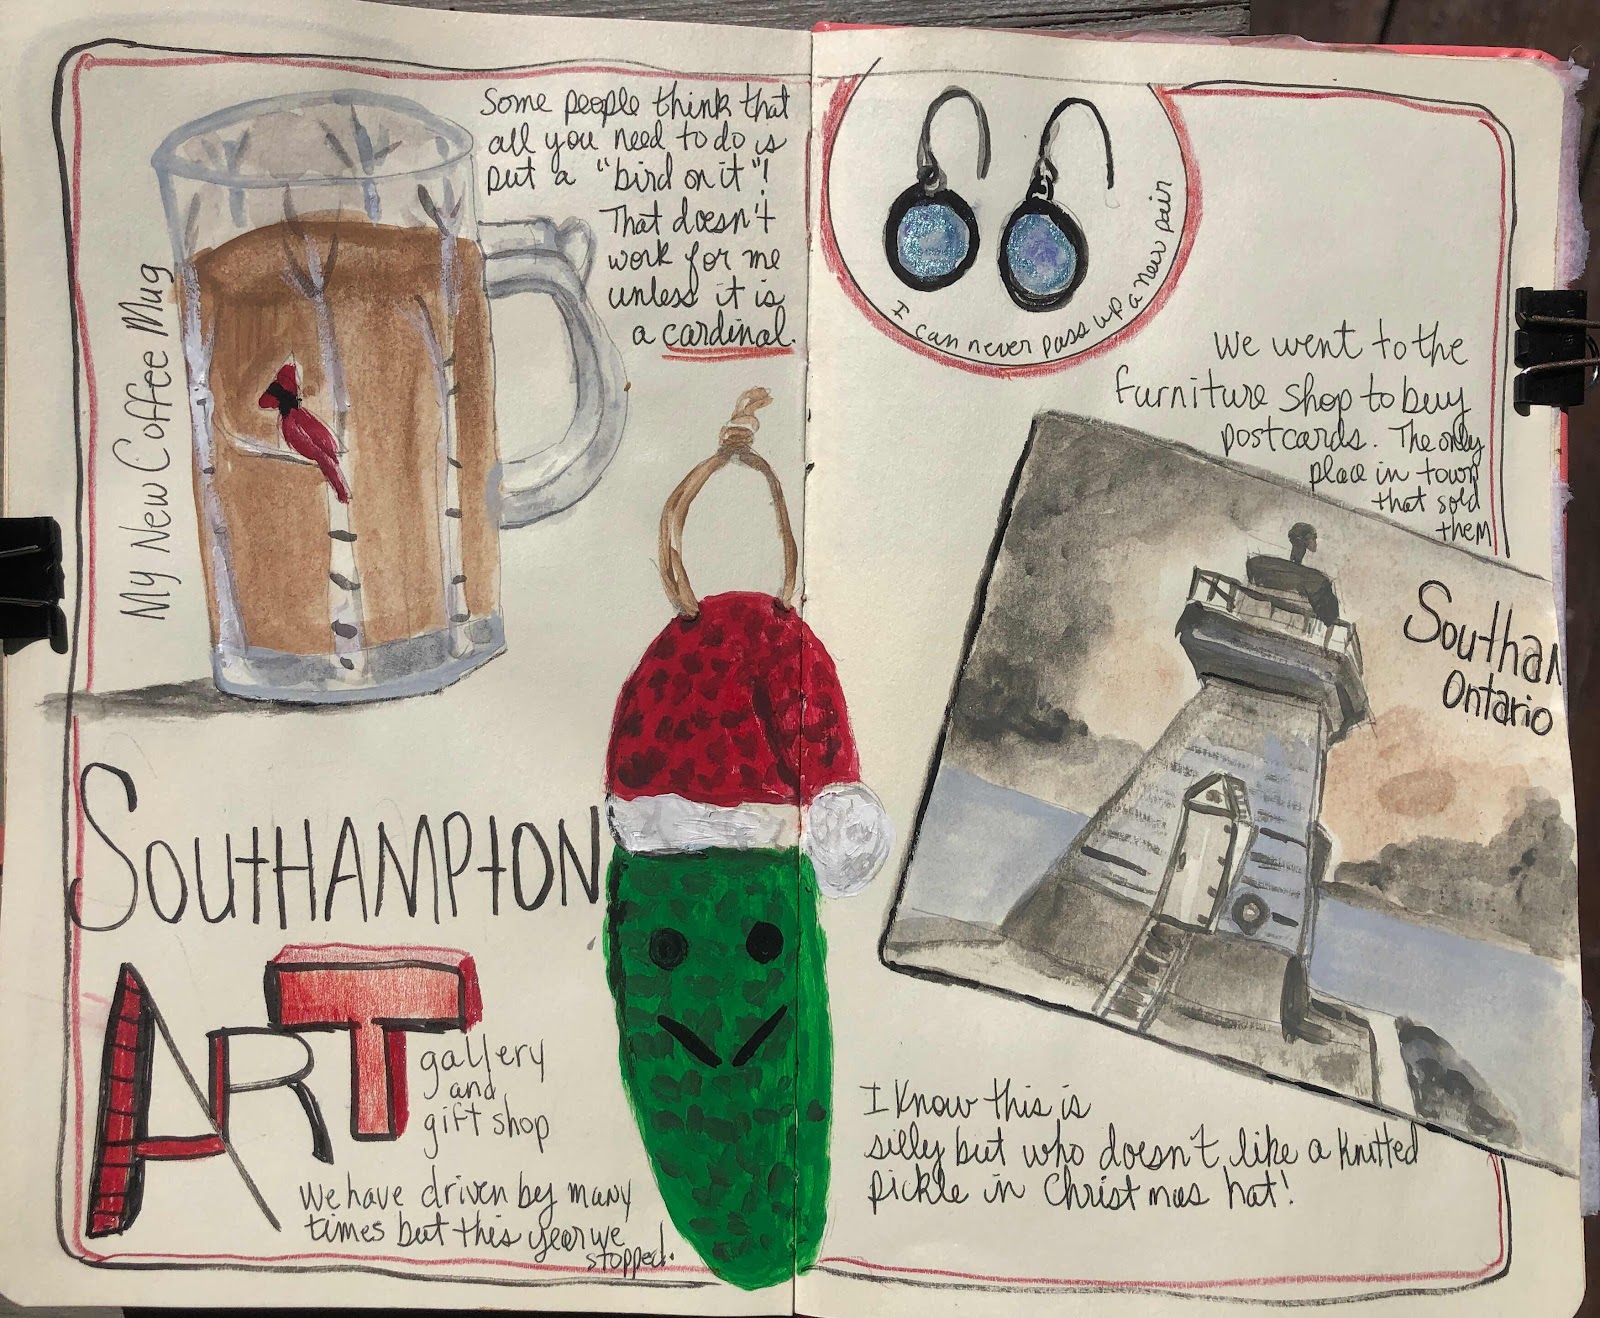 Some people think that
all you need to do is
put a "bird on it"!
That doesn't
work for me
unless it is
a cardinal.
My New Coffee Mug
SOUTHAMPTON
ART
gallery
and
gift shop
We have driven by many
times but this year we
stopped.
I can never pass up a new pair
We went to the
furniture shop to buy
postcards. The only
place in town
that sold
them
Southam
Ontario
I know this is
silly but who doesn't like a knitted
pickle in Christmas hat!